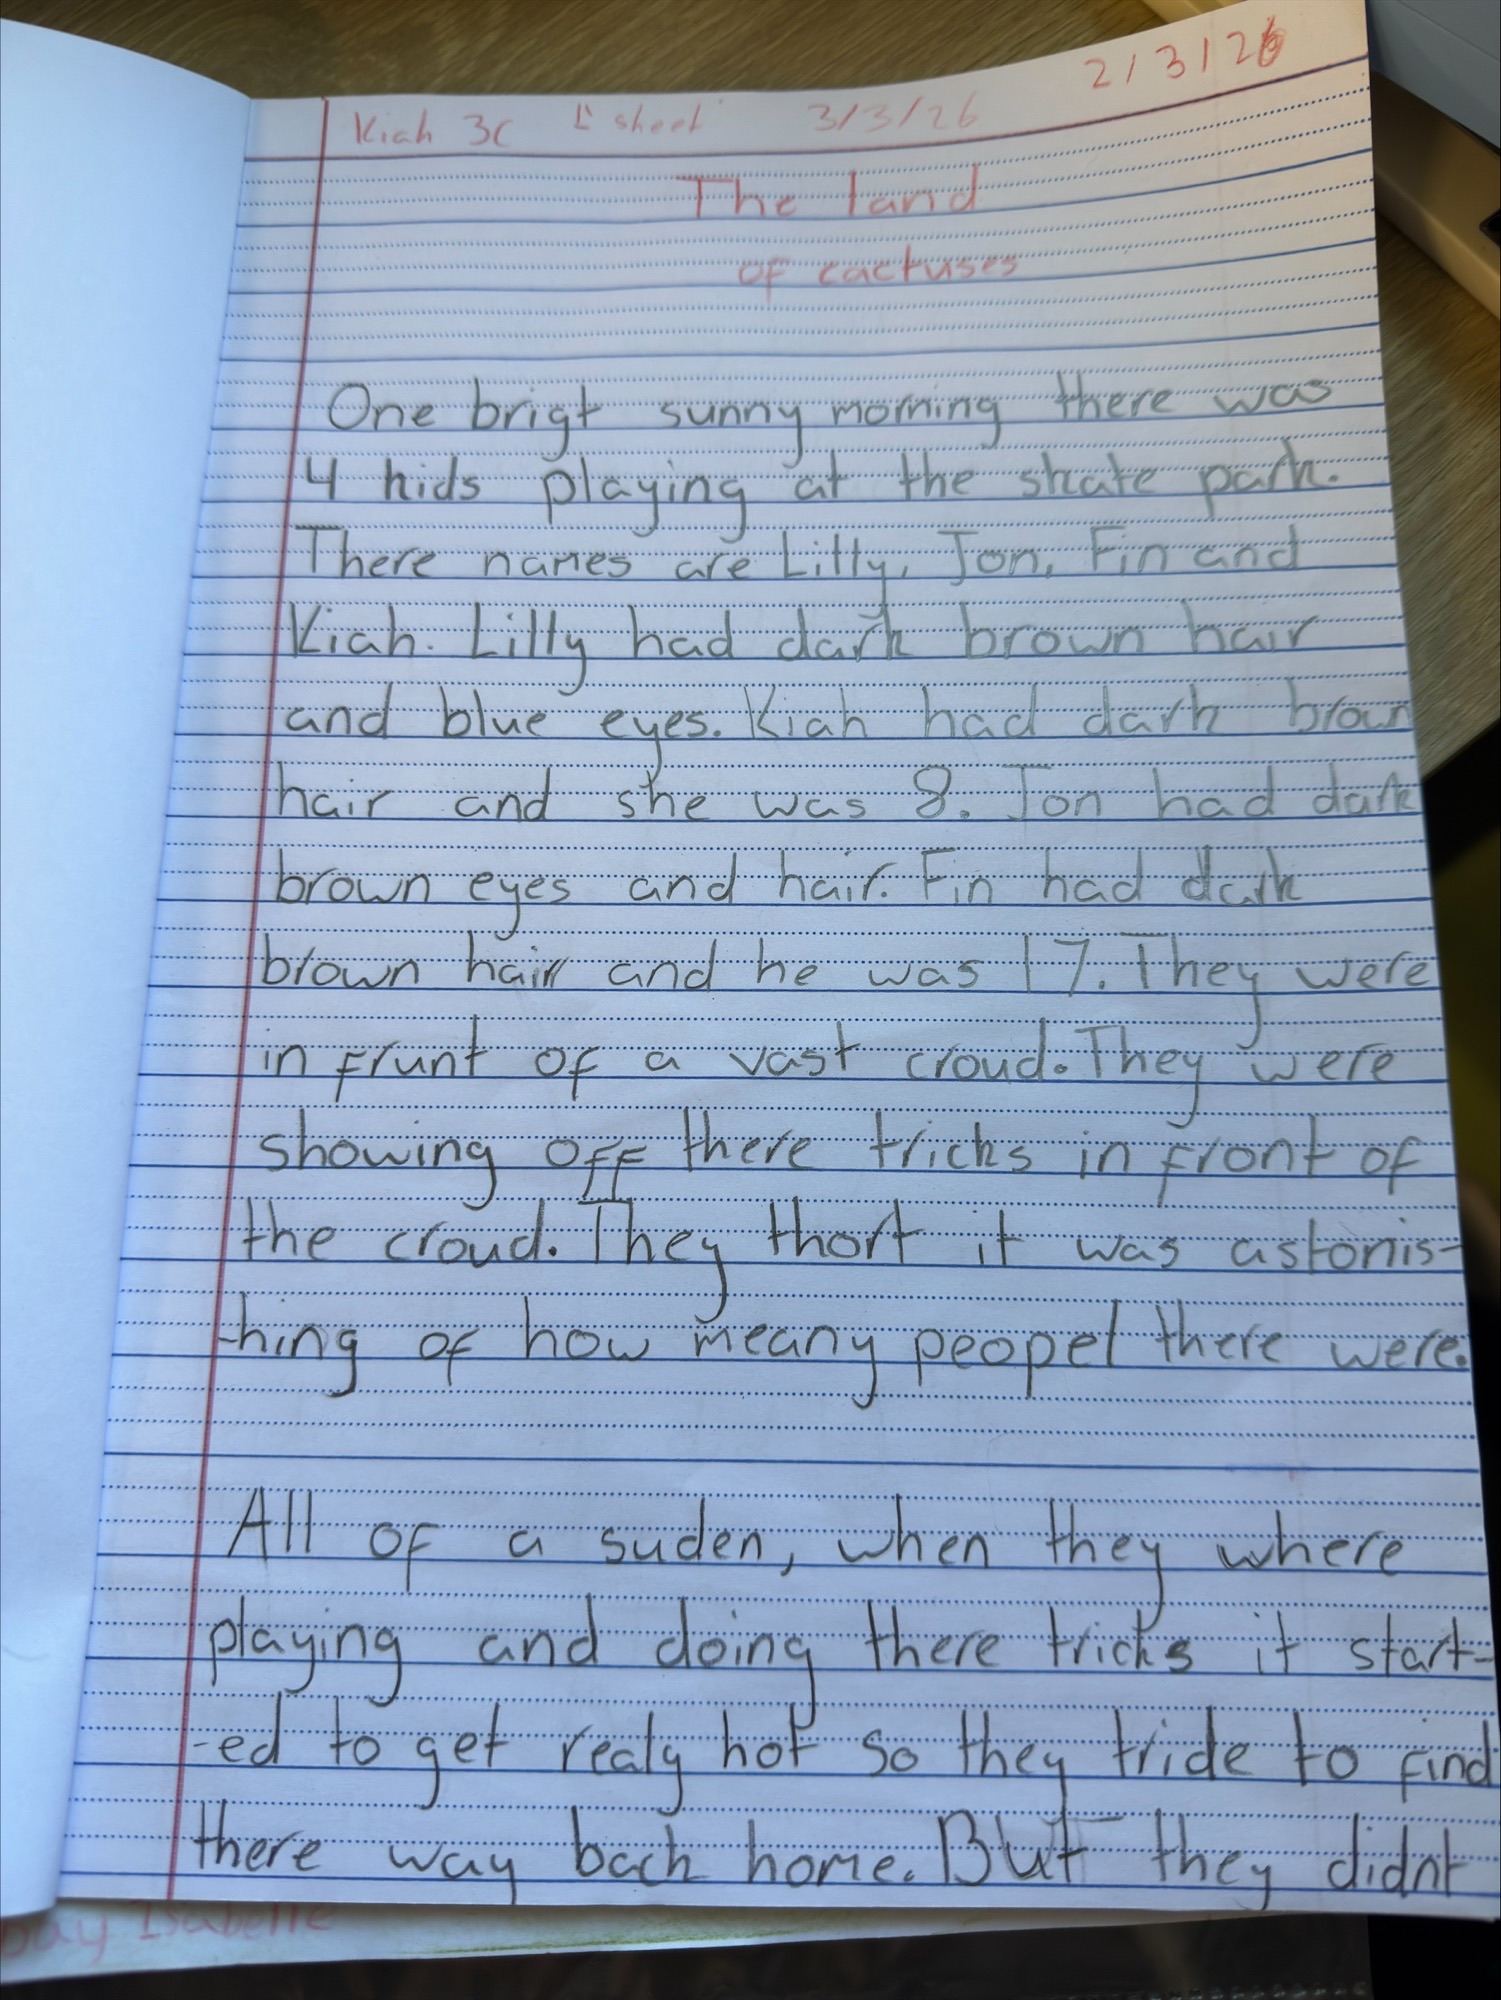 2/3/26
Kiah 3C 1st sheet 3/3/26
The land
of cactuses
One brigt sunny morning there was
4 kids playing at the skate park.
There names are Lilly, Jon, Fin and
Kiah. Lilly had dark brown hair
and blue eyes. Kiah had dark brown
hair and she was 8. Jon had dark
brown eyes and hair. Fin had dark
brown hair and he was 17. They were
in frunt of a vast croud. They were
showing off there tricks in front of
the croud. They thort it was astonis-
-hing of how meany peopel there were.
All of a suden, when they where
playing and doing there tricks it start-
-ed to get realy hot so they tride to find
there way back home. But they didnt
Isabelle